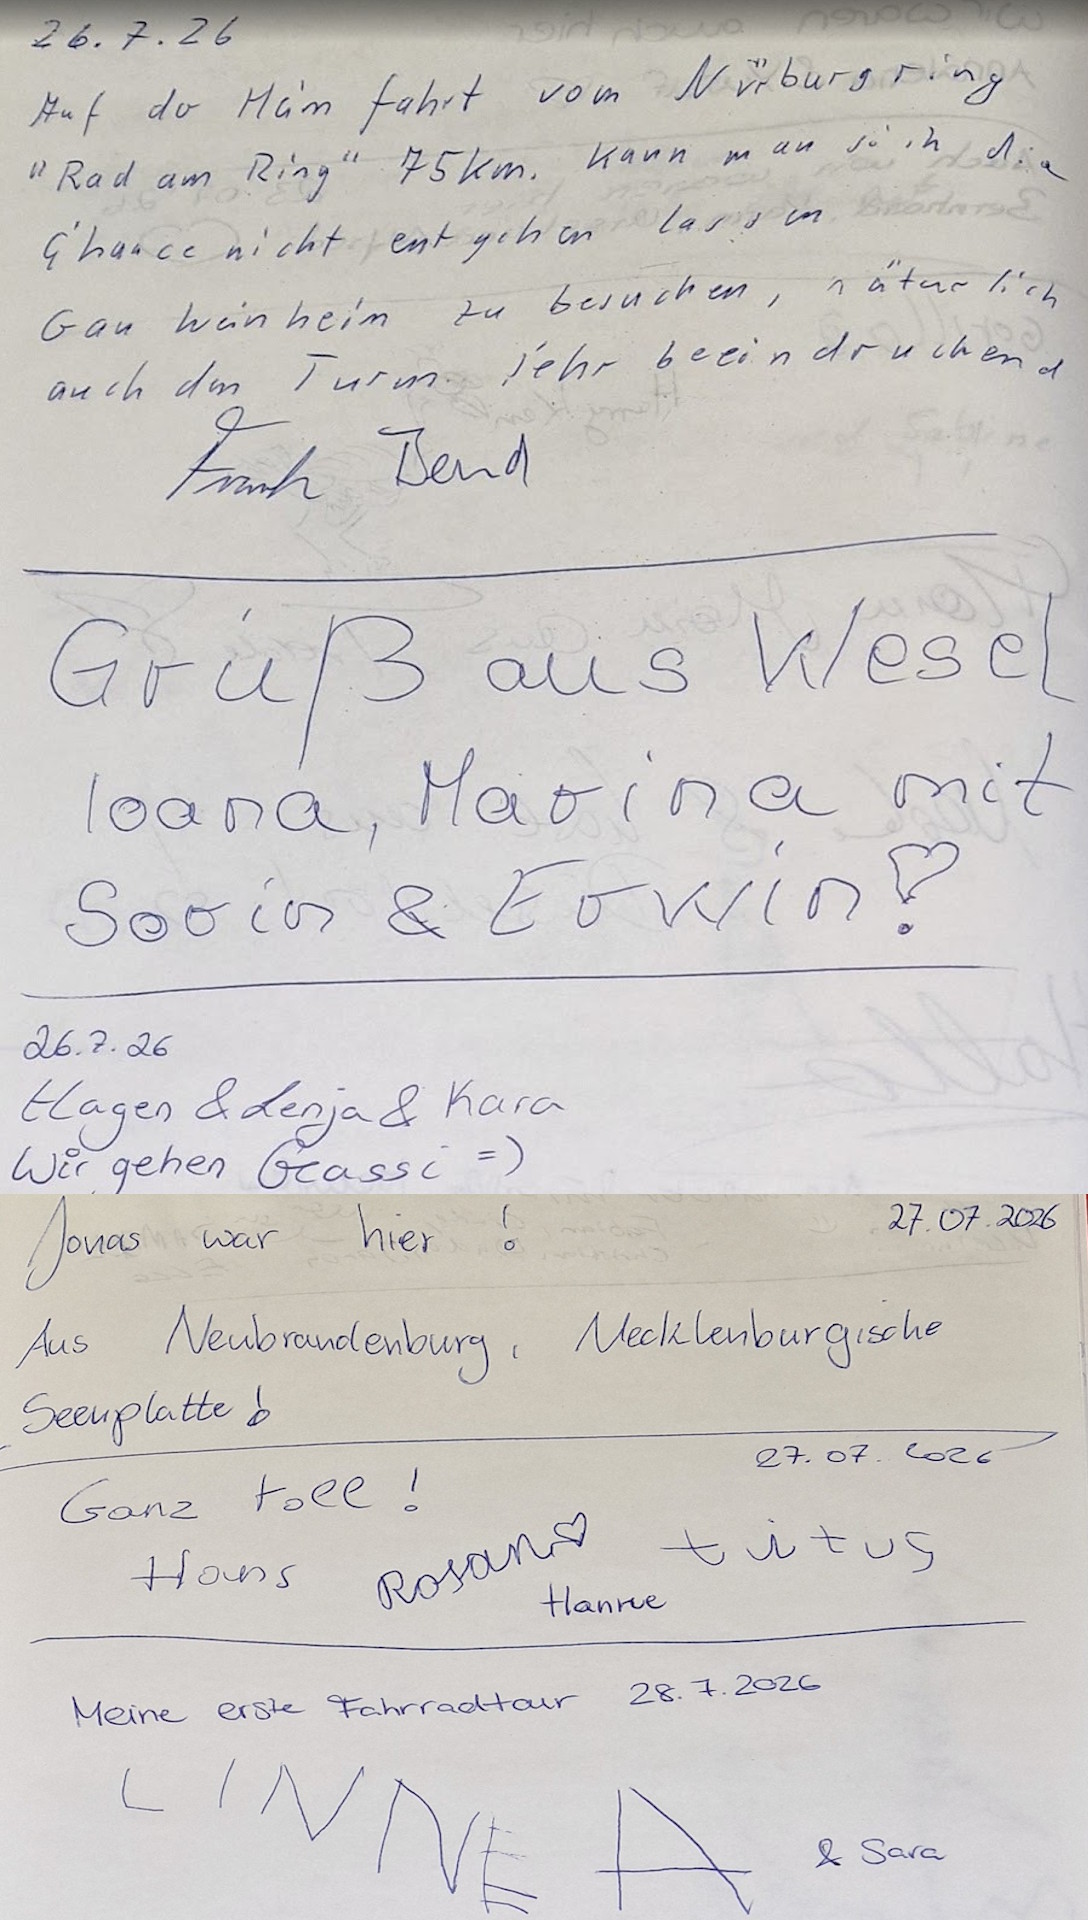 26.7.26
Auf der Heimfahrt vom Nürburgring
"Rad am Ring" 75km. Kann man sich die
Chance nicht entgehen lassen
Gau Weinheim zu besuchen, nätürlich
auch den Turm. Sehr beeindruckend
Frank Bernd
Grüß aus Wesel
Ioana, Marina mit
Sorin & Erwin!
26.7.26
Hagen & Lenja & Kara
Wir gehen Gassi =)
Jonas war hier! 27.07.2026
Aus Neubrandenburg, Mecklenburgische
Seenplatte!
27.07.2026
Ganz toll!
Hans Rosan titus
Hanne
Meine erste Fahrradtour 28.7.2026
LINNEA & Sara